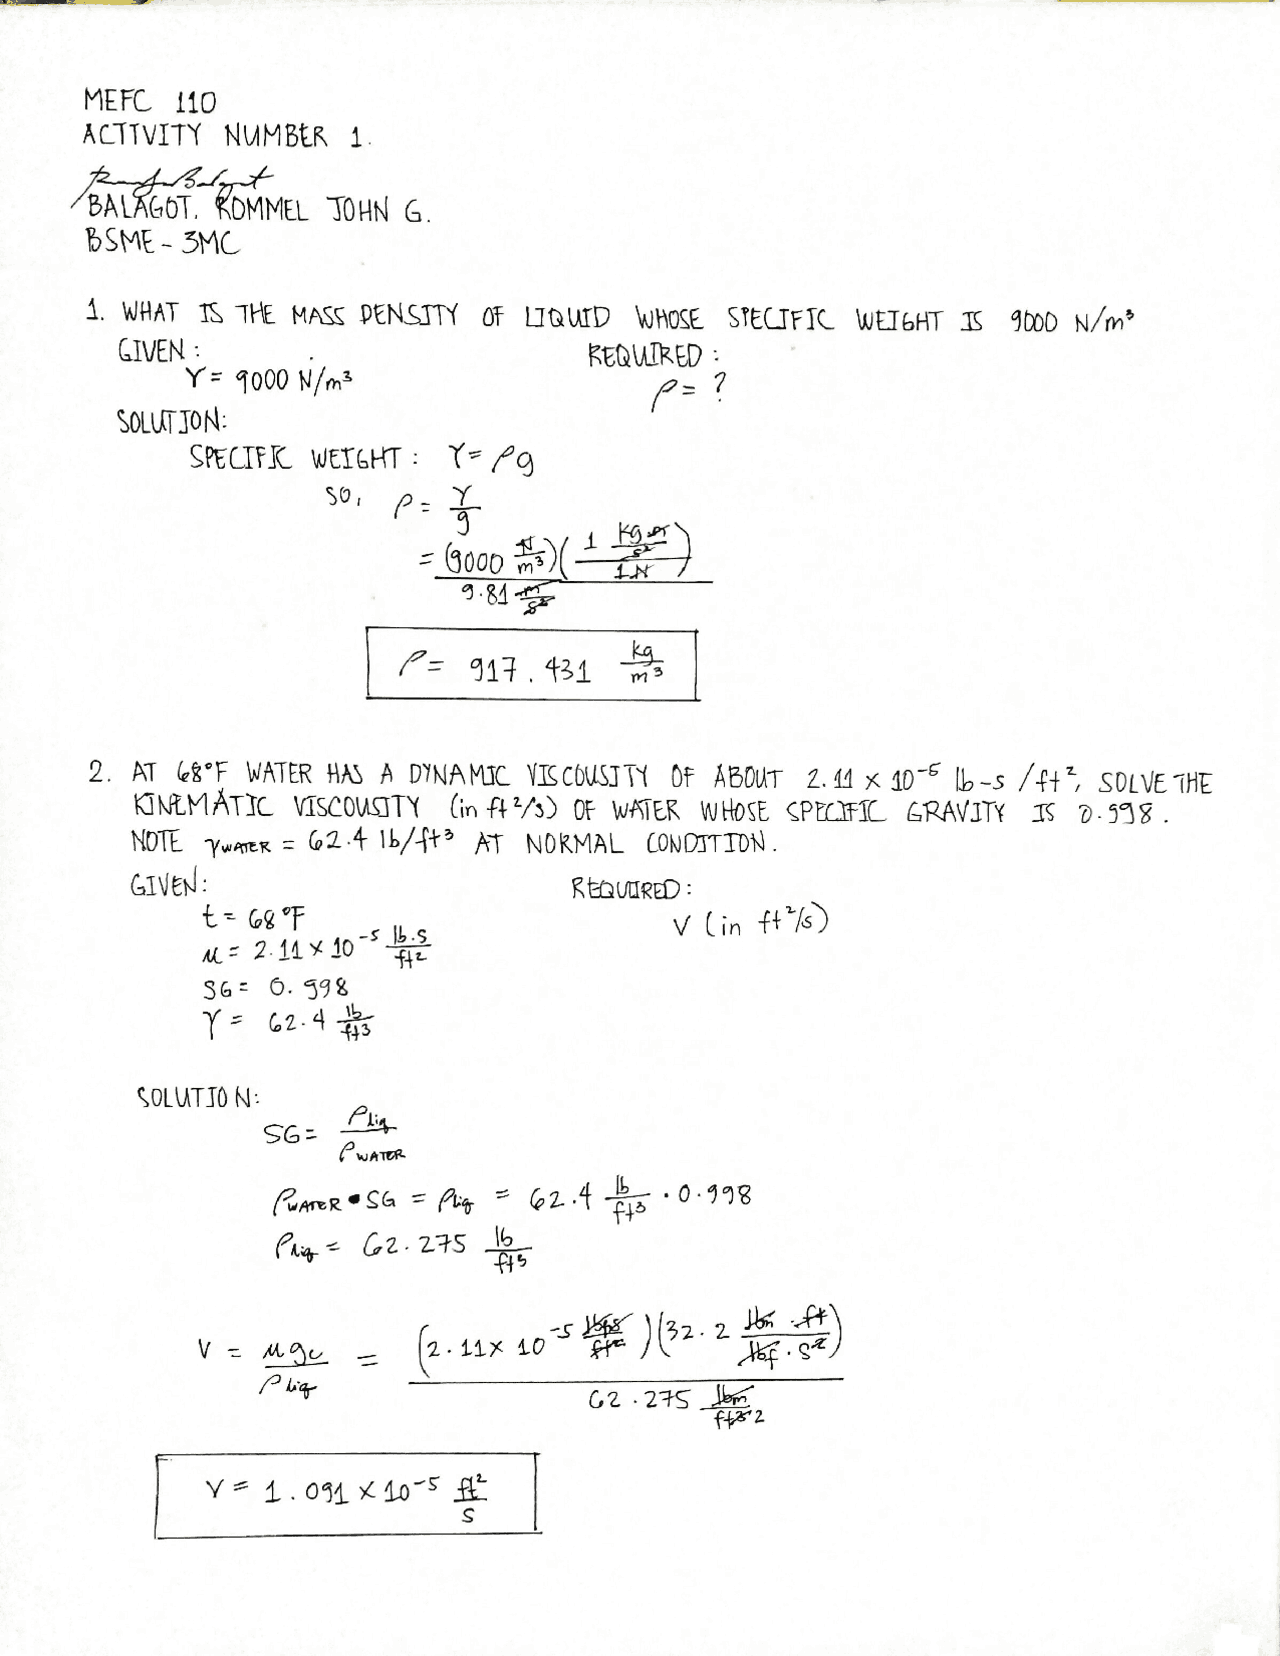 MEFC 110
ACTIVITY NUMBER 1.
BALAGOT, ROMMEL JOHN G.
BSME - 3MC
1. WHAT IS THE MASS DENSITY OF LIQUID WHOSE SPECIFIC WEIGHT IS 9000 N/m³
GIVEN: REQUIRED:
γ = 9000 N/m³ ρ = ?
SOLUTION:
SPECIFIC WEIGHT: γ = ρg
SO, ρ = γ/g
= (9000 N/m³)(1 kg·m/s² / 1N) / 9.81 m/s²
ρ = 917.431 kg/m³
2. AT 68°F WATER HAS A DYNAMIC VISCOUSITY OF ABOUT 2.11 x 10⁻⁵ lb-s/ft², SOLVE THE
KINEMATIC VISCOUSITY (in ft²/s) OF WATER WHOSE SPECIFIC GRAVITY IS 0.998.
NOTE γWATER = 62.4 lb/ft³ AT NORMAL CONDITION.
GIVEN: REQUIRED:
t = 68°F ν (in ft²/s)
μ = 2.11 x 10⁻⁵ lb·s/ft²
SG = 0.998
γ = 62.4 lb/ft³
SOLUTION:
SG = ρliq/ρWATER
ρWATER • SG = ρliq = 62.4 lb/ft³ · 0.998
ρliq = 62.275 lb/ft³
ν = μgc/ρliq = (2.11 x 10⁻⁵ lbf·s/ft²)(32.2 lbm·ft/lbf·s²) / 62.275 lbm/ft³ 2
ν = 1.091 x 10⁻⁵ ft²/s